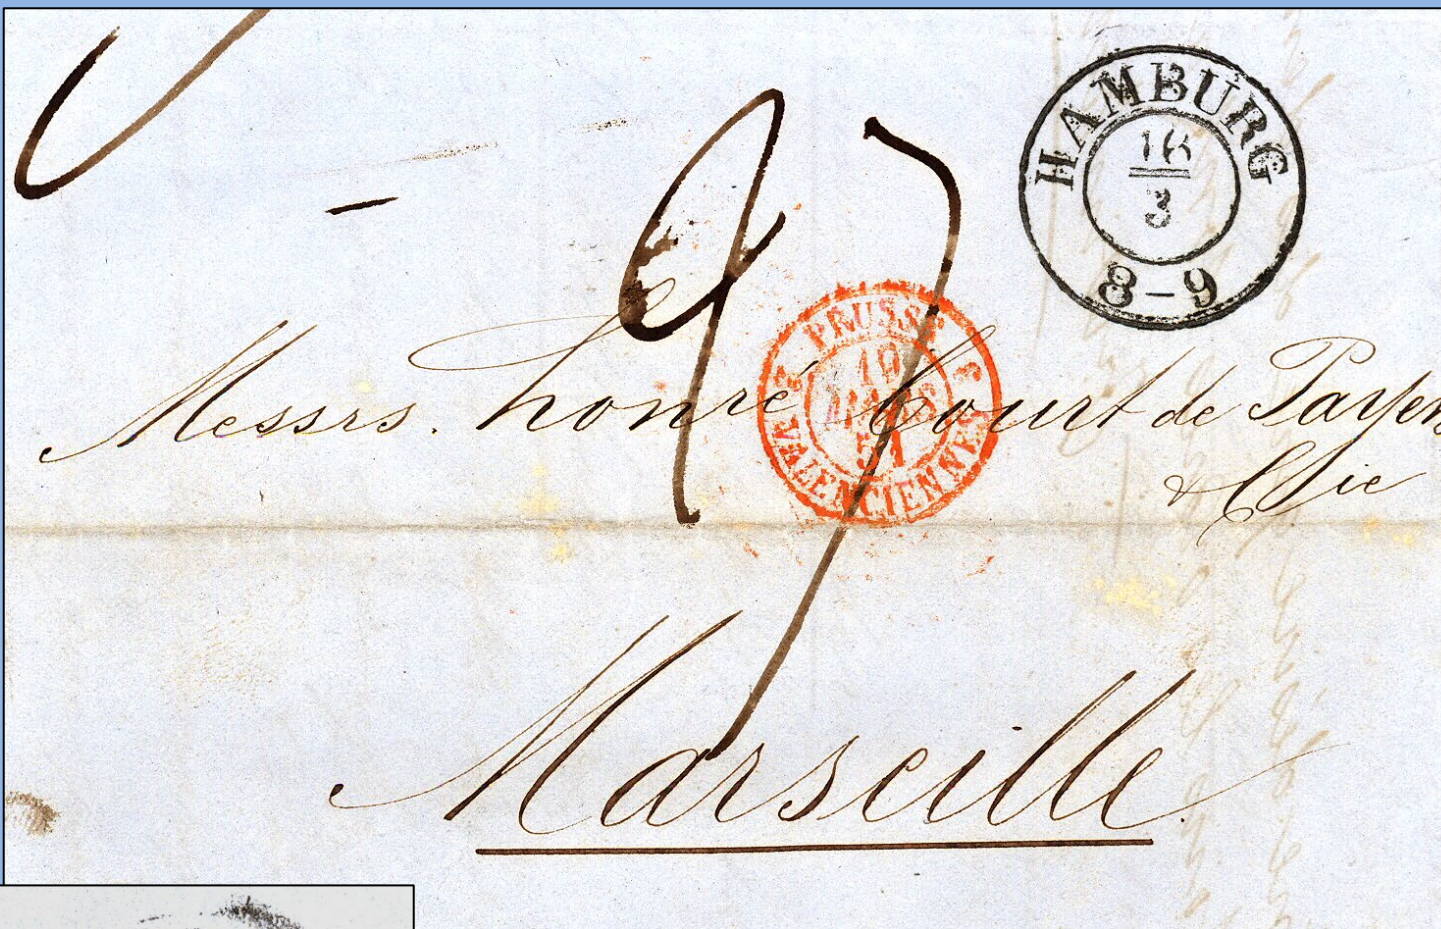 HAMBURG
16
3
8-9
PRUSSE
19
MARS
51
2 VALENCIENNES 2
Messrs. honré Court de Payen
& Cie
Marseille